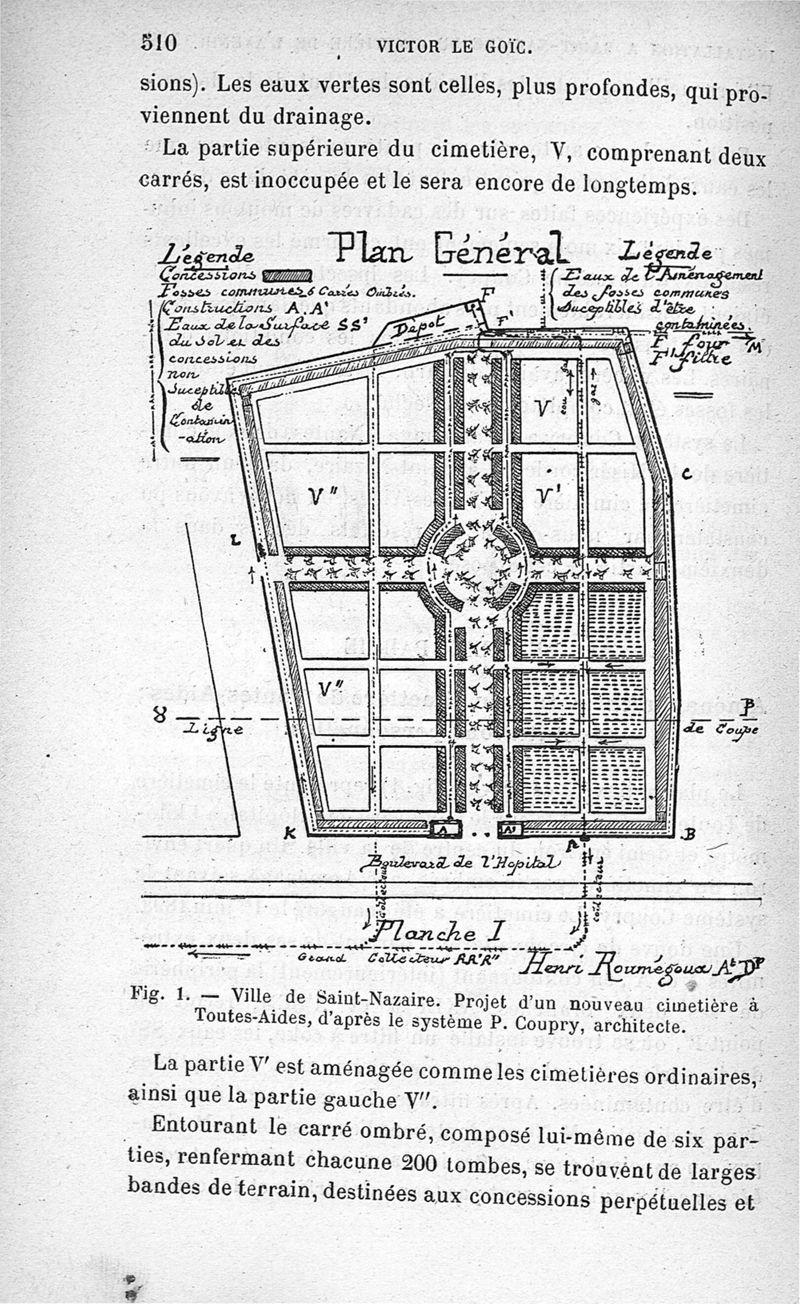 510
VICTOR LE GOÏC.
sions). Les eaux vertes sont celles, plus profondes, qui pro-
viennent du drainage.
La partie supérieure du cimetière, V, comprenant deux
carrés, est inoccupée et le sera encore de longtemps.
Plan Général
Légende
Concessions
Fosses communes 6 Carrés Ombrés.
Constructions A. A'
Eaux de la Surface SS'
du Sol et des
concessions
non
Suceptibles
de
Contamin
-ation
Légende
Eaux de l'Aménagement
des fosses communes
Suceptibles d'être
contaminées.
F four
F' filtre
M
Dépot
F
F'
V
eau
gaz
C
V"
V'
L
V"
8
Ligne
B
de Coupe
K
A
A'
R
B
Boulevard de l'Hopital
Collecteur
collecteur
Planche I
Grand Collecteur RR'R"
Henri Roumégoux At DP
Fig. 1. — Ville de Saint-Nazaire. Projet d'un nouveau cimetière à
Toutes-Aides, d'après le système P. Coupry, architecte.
La partie V' est aménagée comme les cimetières ordinaires,
ainsi que la partie gauche V".
Entourant le carré ombré, composé lui-même de six par-
ties, renfermant chacune 200 tombes, se trouvent de larges
bandes de terrain, destinées aux concessions perpétuelles et